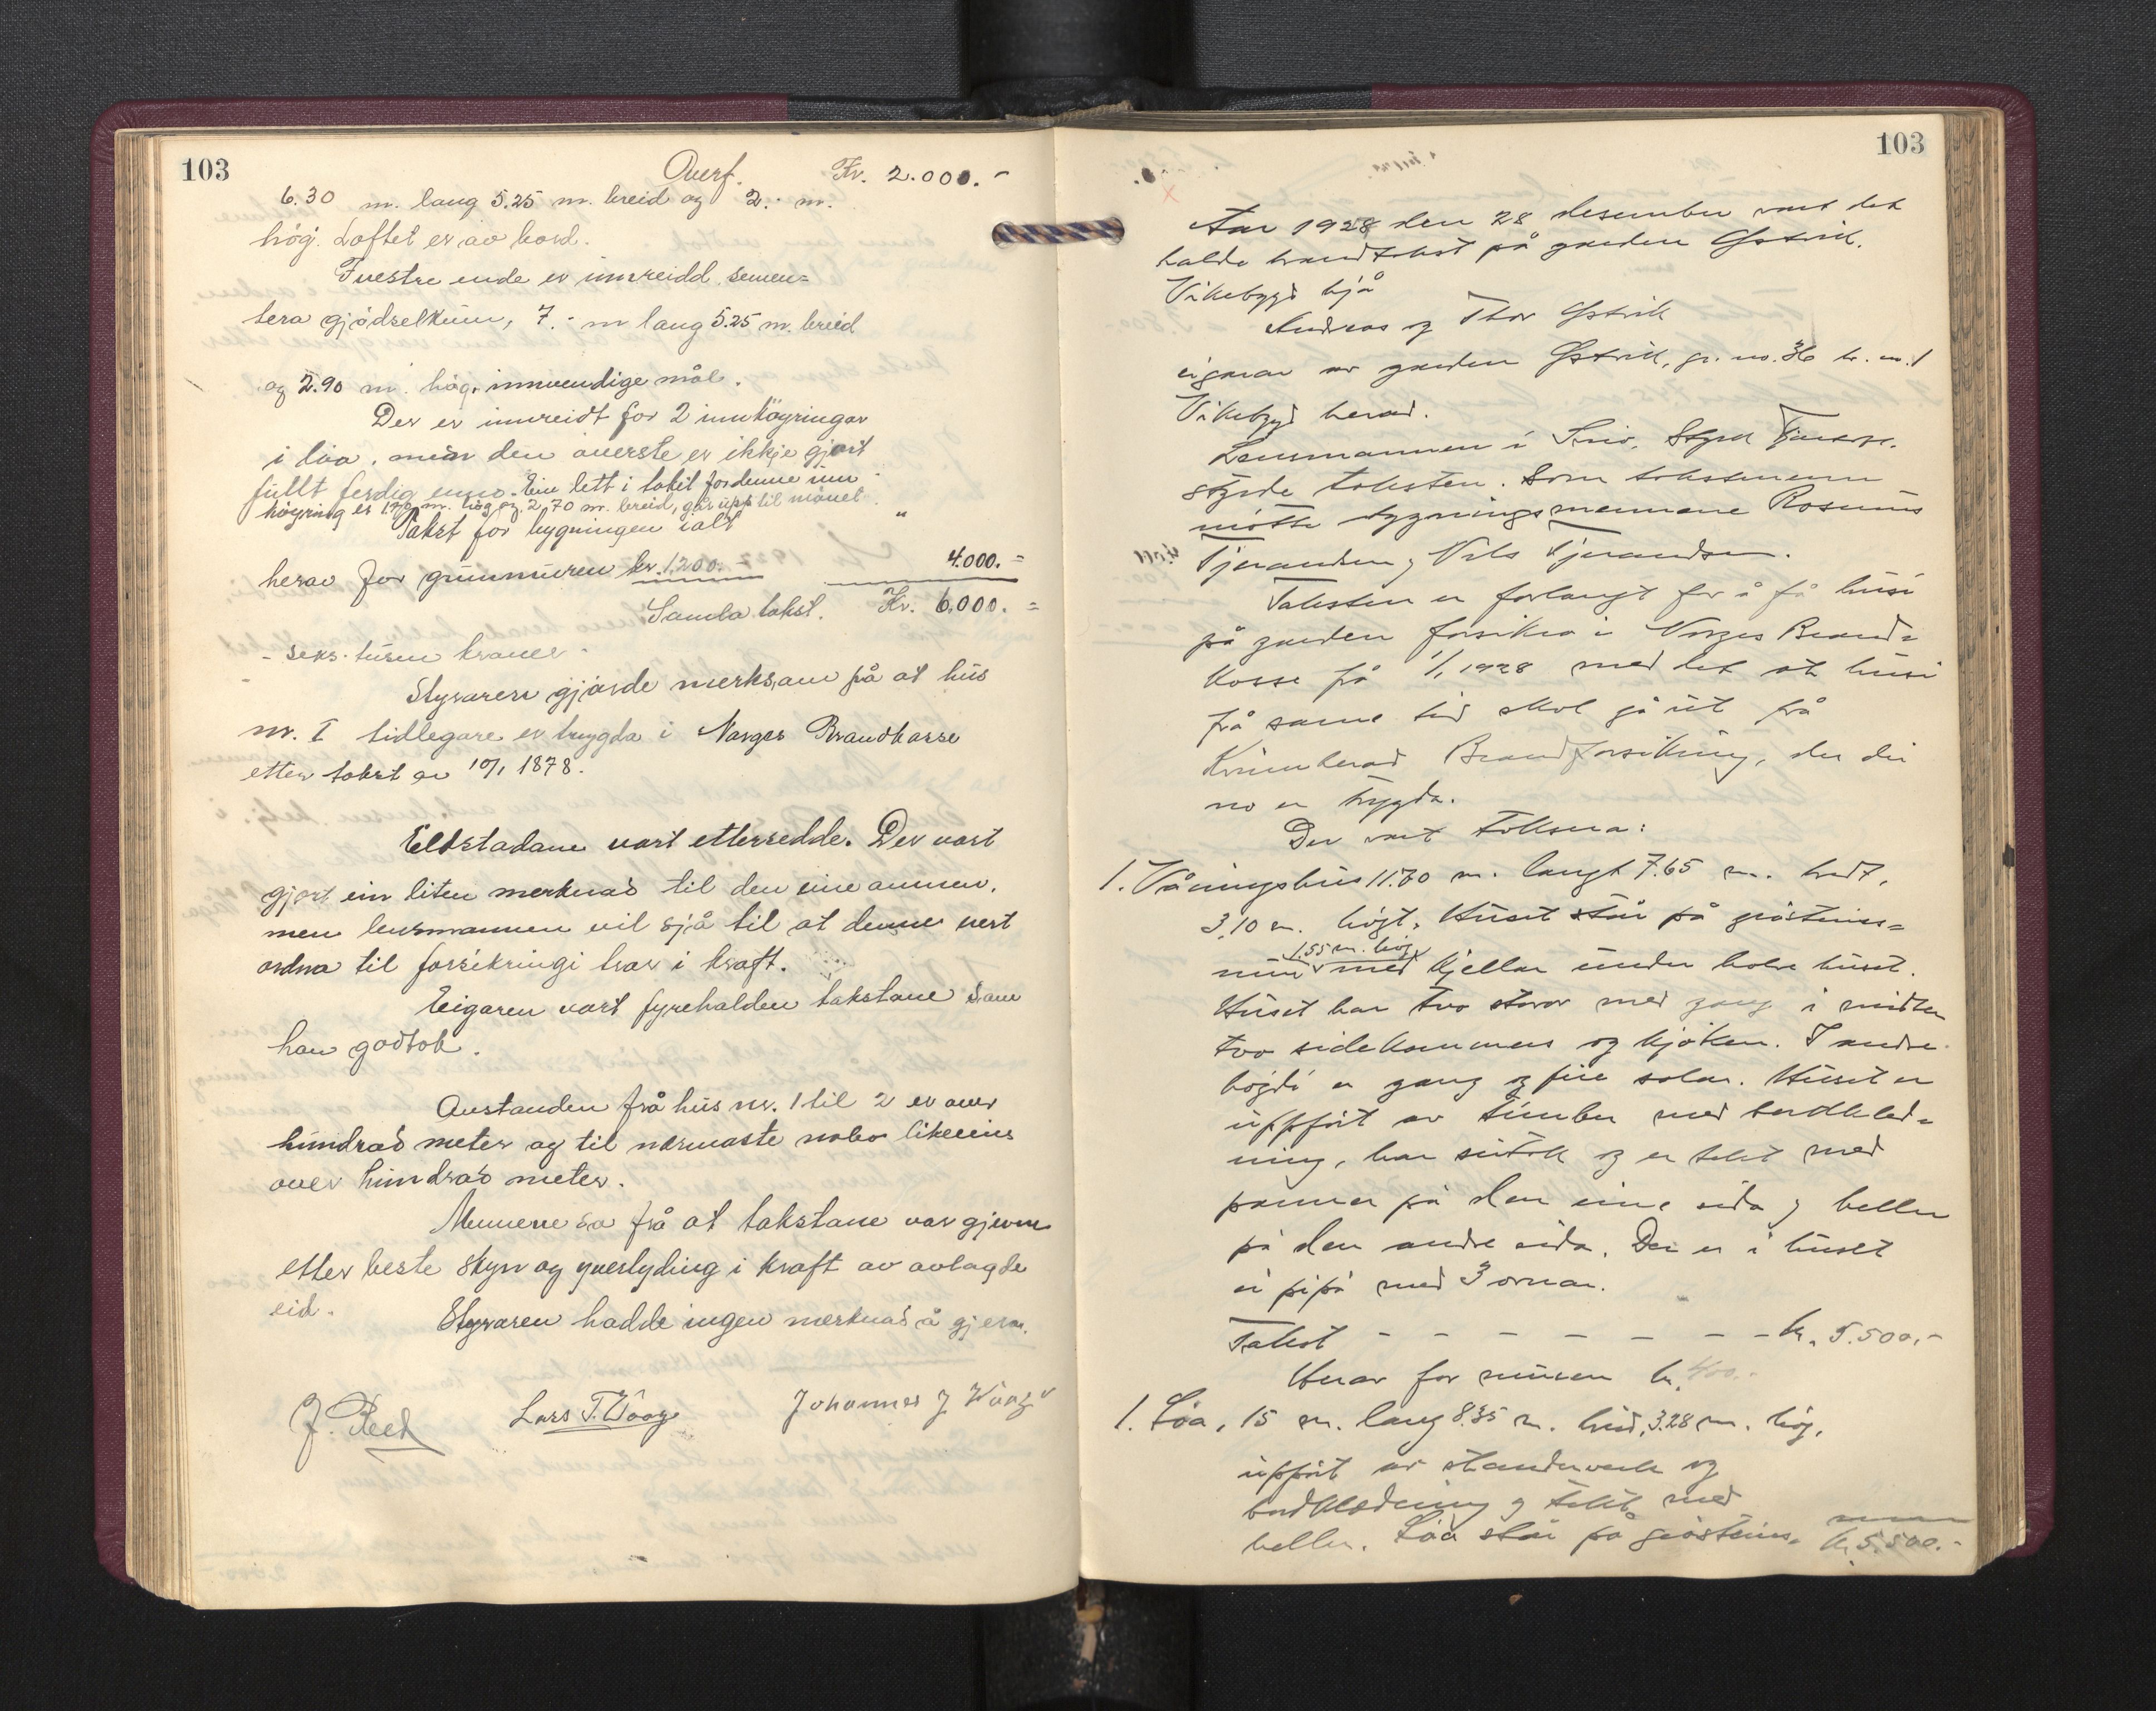 103
Overf. Kr. 2.000.-
6.30 m. lang 5.25 m. breid og 2.- m.
høg. Loftet er av bord.
I vestre ende er innreidd semen=
tera gjødselkum, 7.- m lang 5.25 m. breid
og 2.90 m. høg, innvendige mål.
Der er innreidt for 2 innkøyringar
i løa, men den øverste er ikkje gjort
fullt ferdig enno. Ein lett i taket for denne inn
køyring er 1.90 m. høg og 2,70 m. breid, går upp til mønet.
Takst for bygningen ialt "
herav for grunnmuren kr. 1200.- 4.000.-
Samla takst. Kr. 6.000.-
- seks-tusen kroner -
Styraren gjorde merksam på at hus
nr. I tidlegare er trygda i Norges Brandkasse
etter takst av 10/1 1878.
Eldstadane vart ettersedde. Der vart
gjort ein liten merknad til den eine omnen,
men lensmannen vil sjå til at denne vert
ordna til forsikringi trær i kraft.
Eigaren vart fyrehalden takstane som
han godtok.
Avstanden frå hus nr. 1 til 2 er over
hundrad meter og til nærmaste nabo likeeins
over hundrad meter.
Mennene sa frå at takstane var gjevne
etter beste skyn og yvertyding i kraft av avlagde
eid.
Styraren hadde ingen merknad å gjera.
Lars T. Våge Johannes J Våge
103
Aar 1928 den 28 desember vart det
halde brandtakst på garden Østvik,
Vikebygd hjå
Andreas og Thor Østvik
eigarar av garden Østvik, gr. no. 36 br. no. 1
Vikebygd herad.
Lensmannen i
styrde taksten. Som takstmenn
møtte skyningsmennene Rasmus
Tjerandsen og Nils Tjerandsen.
Taksten er forlangt for å få husi
på garden forsikra i Norges Brand=
kasse frå 1/1 1928 med det at husi
frå same tid skal gå ut frå
Kvinnherad Brandforsikring, der dei
no er trygda.
Der vart taksera:
1. Våningshus 11.70 m. langt 7.65 m. bredt,
3,10 m. høgt. Huset står på gråsteins=
1.55 m. høg
mur med kjellar under halve huset.
Huset har tvo stovor med gang i midten
tvo sidekammers og kjøken. I andre
høgdi er gang og fire salar. Huset er
uppført av tømber med bordkled=
ning, har sutak og er tekt med
panner på den eine sida og heller
på den andre sida. Der er i huset
ei pipå med 3 omnar.
Takst - - - - - - - kr. 5.500.-
Herav for muren kr. 400.-
1. Løa, 15 m. lang 8.35 m. breid, 3.28 m. høg,
uppført av stenderverk og
bordklædning og tekt med
heller. Løa står på gråsteins=
kr. 5.500.-